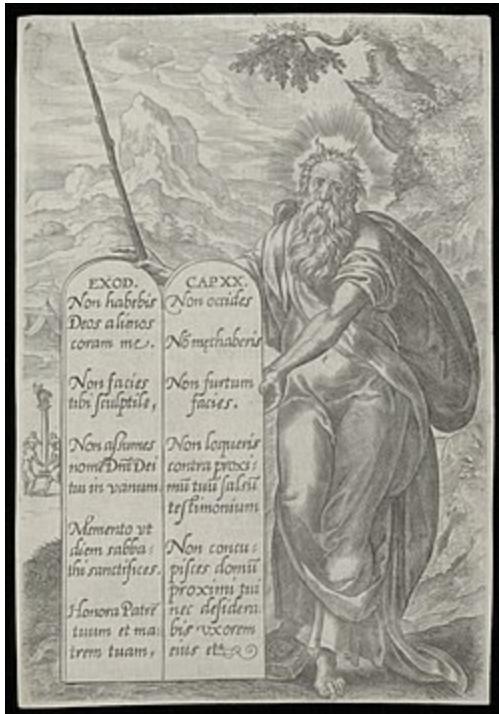 EXOD.
Non habebis
Deos alienos
coram me.
Non facies
tibi sculptile,
Non assumes
nomē Dn̄i Dei
tui in vanum.
Memento vt
diem sabba:
thi sanctifices.
Honora Patrē
tuum et ma:
trem tuam,
CAP XX.
Non occides
Nō męchaberis
Non furtum
facies.
Non loqueris
contra proxi:
mū tuū falsū
testimonium
Non concu:
pisces domū
proximi tui
nec desidera
bis vxorem
eius etc